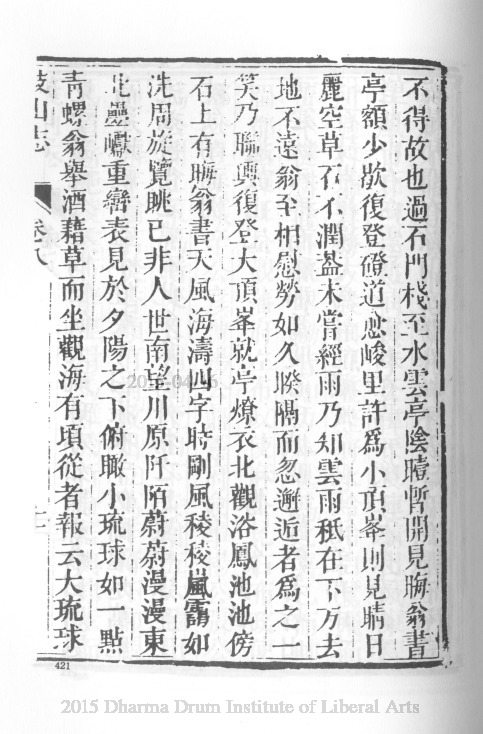 不得故也過石門棧至水雲亭陰曀暫開見晦翁書
亭額少歇復登磴道愈峻里許爲小頂峯則見晴日
麗空草石不潤蓋未嘗經雨乃知雲雨秪在下方去
地不遠翁至相慰勞如久睽隔而忽邂逅者爲之一
笑乃聯輿復登大頂峯就亭燎衣北觀浴鳳池池傍
石上有晦翁書天風海濤四字時剛風稜稜嵐霱如
洗周旋覽眺已非人世南望川原阡陌蔚蔚漫漫東
北疊巘重巒表見於夕陽之下俯瞰小琉球如一點
青螺翁舉酒藉草而坐觀海有頃從者報云大琉球
鼓山志
卷八
421
2015 Dharma Drum Institute of Liberal Arts